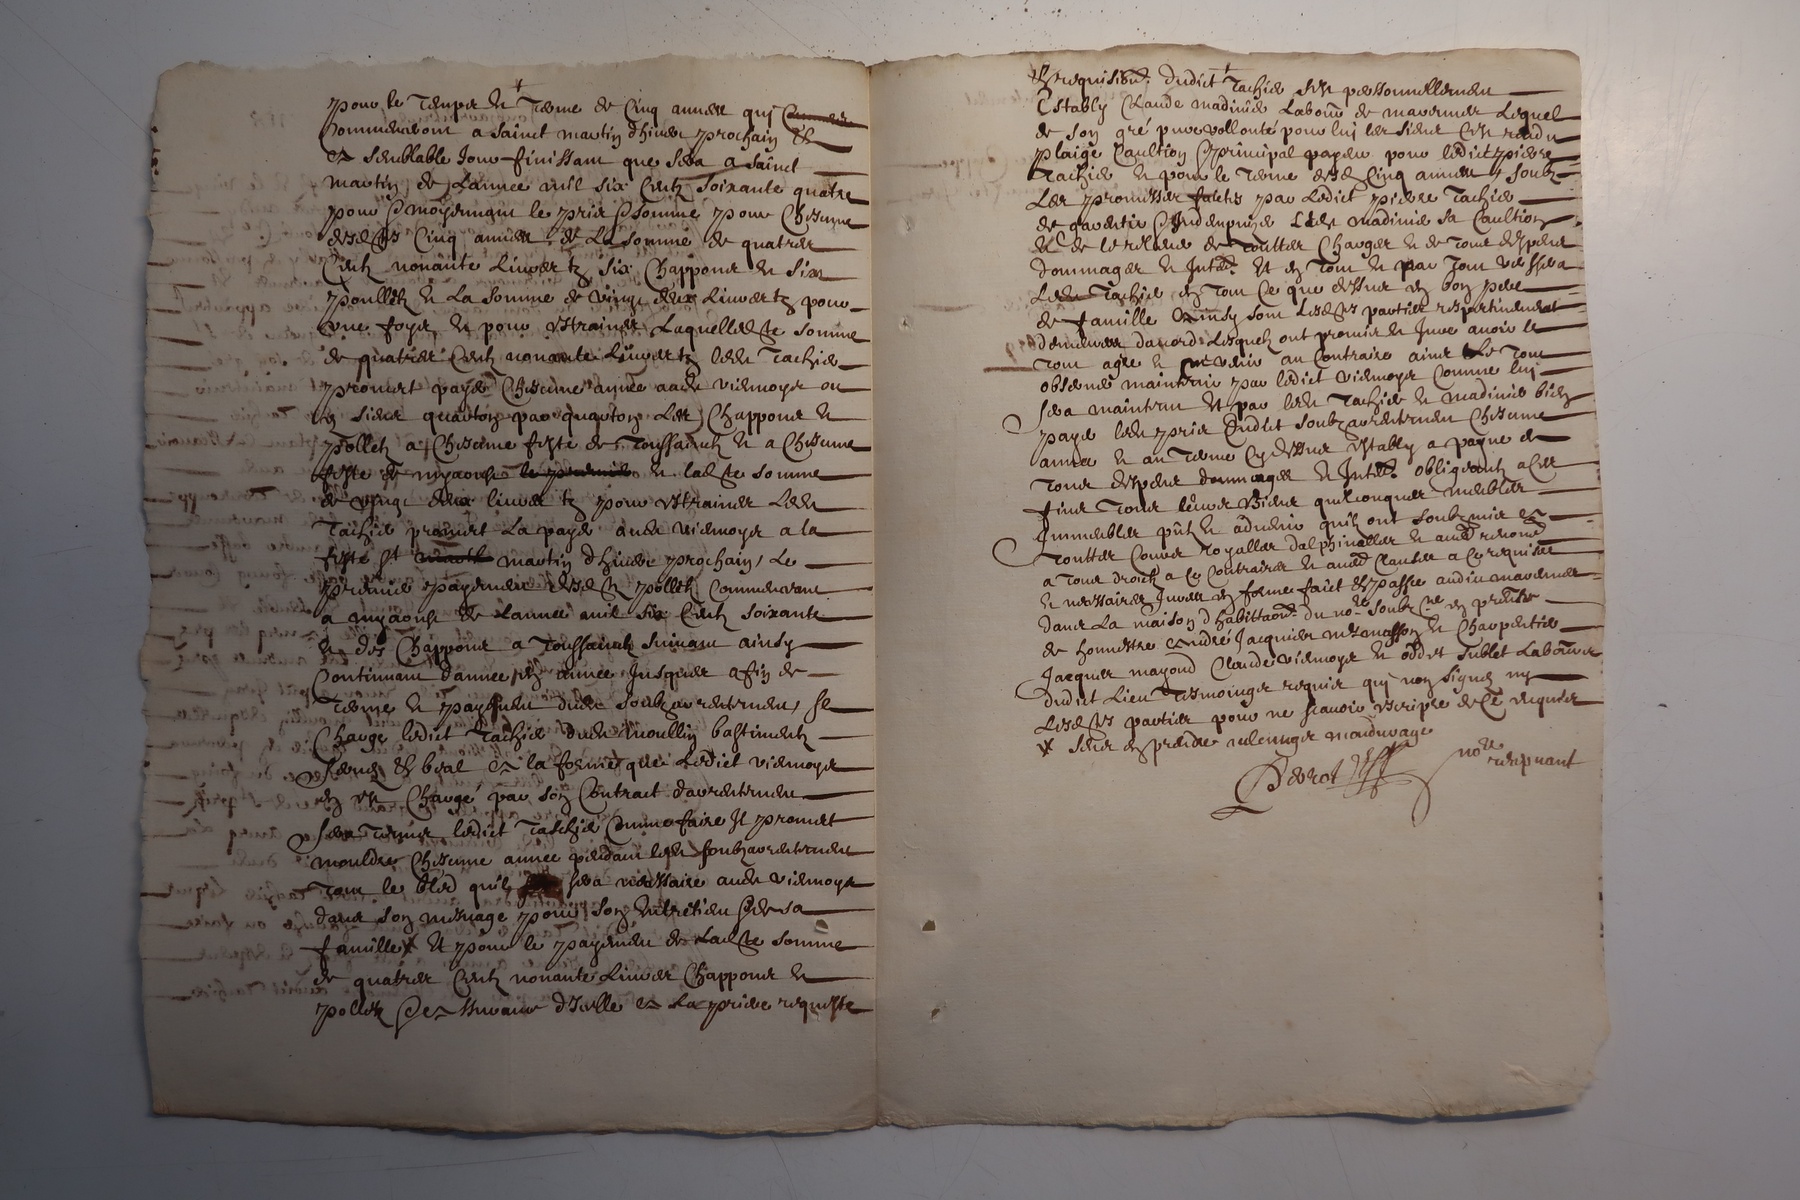 pour le temps et terme de cinq annees qui
commenceront a sainct martin dhiver prochain et
a semblable jour finissant que sera a sainct
martin de lannee mil six centz soixante quatre
pour et moyennant le prix et somme pour chescune
desdtes cinq annees de la somme de quatres
centz nonante livres tz six chappons et six
poulletz et la somme de vingt deux livres tz pour
une foys et pour estraines laquelle dte somme
de quatres centz nonante livres tz ledit tachier
promet payer chescune annee audt viennoys ou
es siens quarton par quarton les chappons et
polletz a chescune feste de toussainctz et a chescune
feste de myaoust et ladte somme
de vingt deux livres tz pour estraines ledt
tachier promet la payer audt viennoys a la
feste st martin dhiver prochain, le
premier payement desdts polletz commencant
a myaoust de lannee mil six centz soixante
et des chappons a toussainctz suivant ainsy
continuant dannee en annee jusques a fin de
terme et payement dudt soubzarrentement, se
charge ledict tachier dudt moullin bastimentz
et beal a la forme que ledict viennoys
en est chargé par son contract darrentement
sera tenu ledict taschier comme faire il promet
mouldre chescune annee pendant ledt soubzarrentement
tout le bled quil sera necessaire audt viennoys
dans son mesnage pour son entretien et de sa
famille et pour le payement de ladte somme
de quatres centz nonante livres chappons et
polletz et assurance dicelle a la priere requeste
et requisition dudict tachier sest personnellement
estably claude madinier laboureur de lequel
de son gré pure vollonté pour lui les siens cest rendu
plaige caultion et principal payeur pour ledict pierre
tachier et pour le terme desdts cinq annees soubz
les promesses faictes par ledict pierre tachier
de garentir et indempnizer ledt madinier sa caultion
et de le relever de touttes charges et de tous despens
dommages et intetz et en tout et par tout usera
ledt tachier en tout ce que dessus en bon pere
de famille ainsy sont lesdtes parties respectivement
demeures daccord lesquels ont promis et jure avoir le
tout agre et ne venir au contraire ains le tout
observe maintenir par ledict viennoys comme lui
sera maintenu et par ledt tachier et madinier bien
payer ledt prix dudict soubzarrentement chescune
annee et au terme cy dessus estably a payne de
tous despens dommages et intetz obligeantz a ces
fins tous leurs biens quelconques meubles
immeubles pntz et advenir quilz ont soubzmis a
touttes cours royalles dalphinalles et autres renoncé
a tous droictz a ce contraires et autres clauses a ce requises
et necessaires jurees en forme faict et passé audict
dans la maison dhabittaon du nore soubzne en presence
de honneste andre jacquier mre masson et charpentier
jacques mayoud claude viennoys et oddet tublet laboureurs
dudict lieu tesmoings requis qui nont signez ny
lesdtes parties pour ne scavoir escripre de ce requises
Perrot nore
recepvant